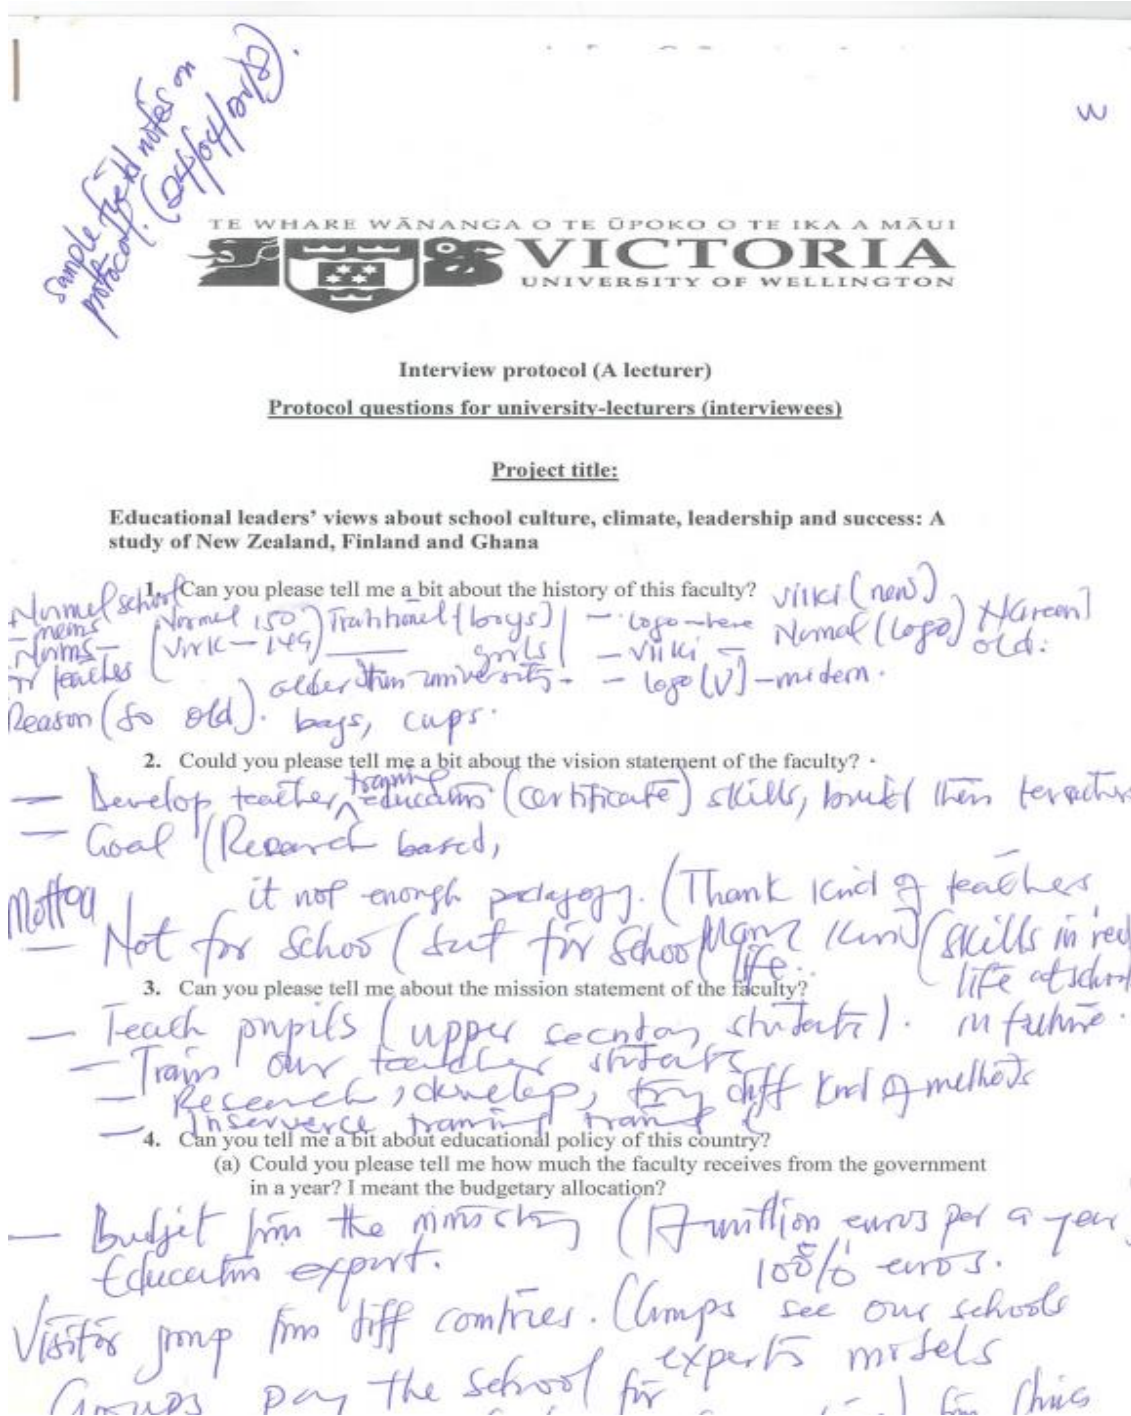 Sample field notes on
protocol. (24/04/2018).
W
TE WHARE WĀNANGA O TE ŪPOKO O TE IKA A MĀUI
VICTORIA
UNIVERSITY OF WELLINGTON
Interview protocol (A lecturer)
Protocol questions for university-lecturers (interviewees)
Project title:
Educational leaders' views about school culture, climate, leadership and success: A
study of New Zealand, Finland and Ghana
1. Can you please tell me a bit about the history of this faculty?
Normel school
Normel 150 Traditional (boys) - Logo-here Normal (Logo)
viikki (new)
old:
- mems
Norms-
149) girls - viiki
teacher older than university. - logo (V) - modern.
Reason (so old). bags, cups.
2. Could you please tell me a bit about the vision statement of the faculty?
- Develop teacher training education (certificate) skills,
- Goal (Research based,
it not enough pedagogy. (Thank kind of teachers
- Not for schoo (but for school life.. (skills in real
life at school
3. Can you please tell me about the mission statement of the faculty?
in future.
- Teach pupils (upper secntary students).
- Train our teacher students
- Research, develop, try diff kind of methods
- Inserverce training
4. Can you tell me a bit about educational policy of this country?
(a) Could you please tell me how much the faculty receives from the government
in a year? I meant the budgetary allocation?
- Budjet from the ministry (17 million euros per a year
Education export. 100% euros.
Visitor group from diff contries. (Groups see our schools
experts models
Groups pay the school for